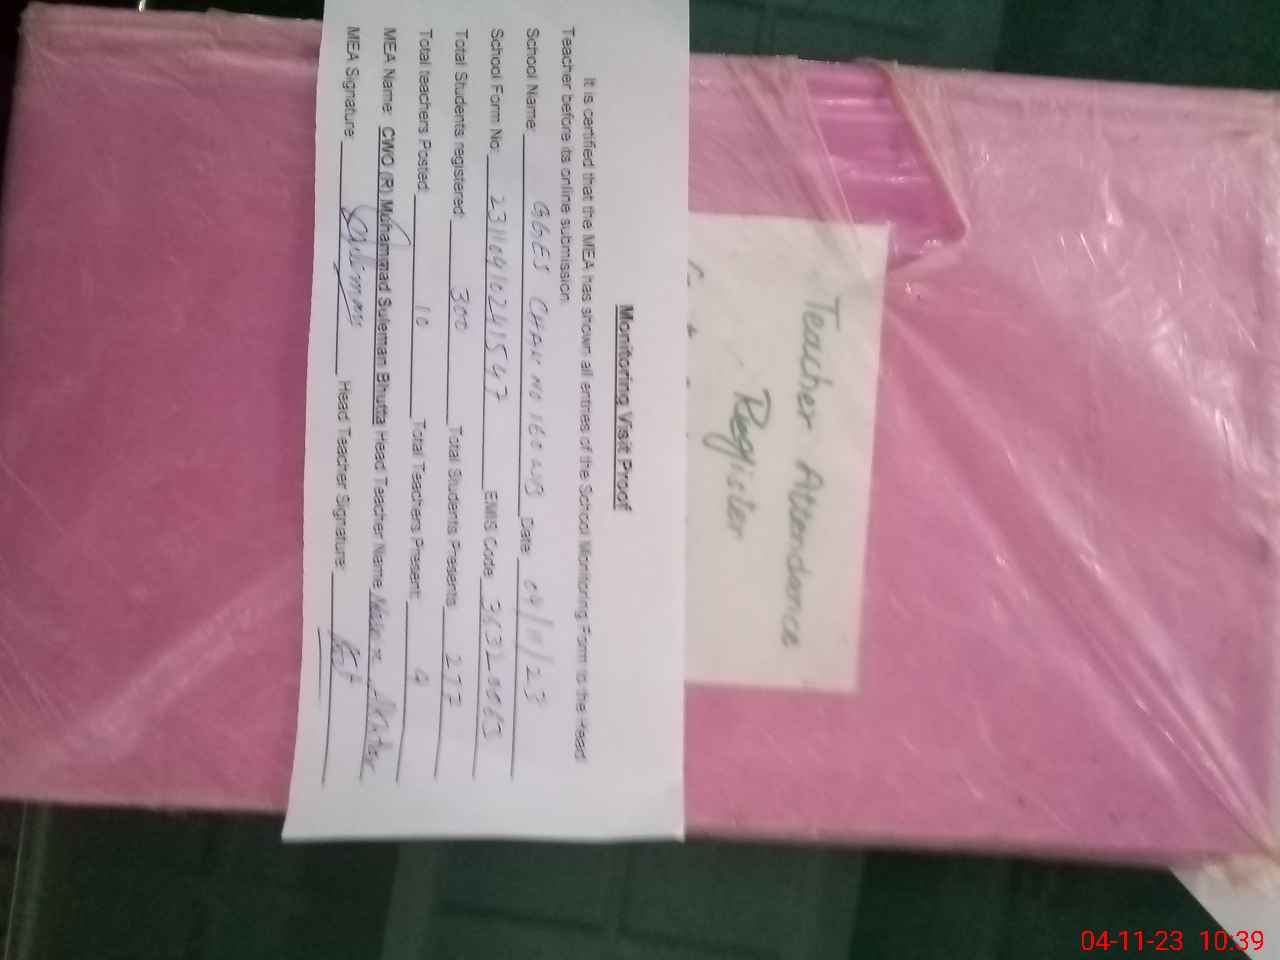 Monitoring Visit Proof
It is certified that the MEA has shown all entries of the School Monitoring Form to the Head
Teacher before its online submission.
School Name: GGES CHAK NO 160 WB Date: 04/11/23
School Form No: 231104102411547 EMIS Code 36320065
Total Students registered: 300 Total Students Presents 277
Total teachers Posted: 10 Total Teachers Present: 9
MEA Name: CWO (R) Muhammad Suleman Bhutta Head Teacher Name Akhter
MEA Signature: Suleman Head Teacher Signature:
Teacher Attendance
Register
04-11-23 10:39